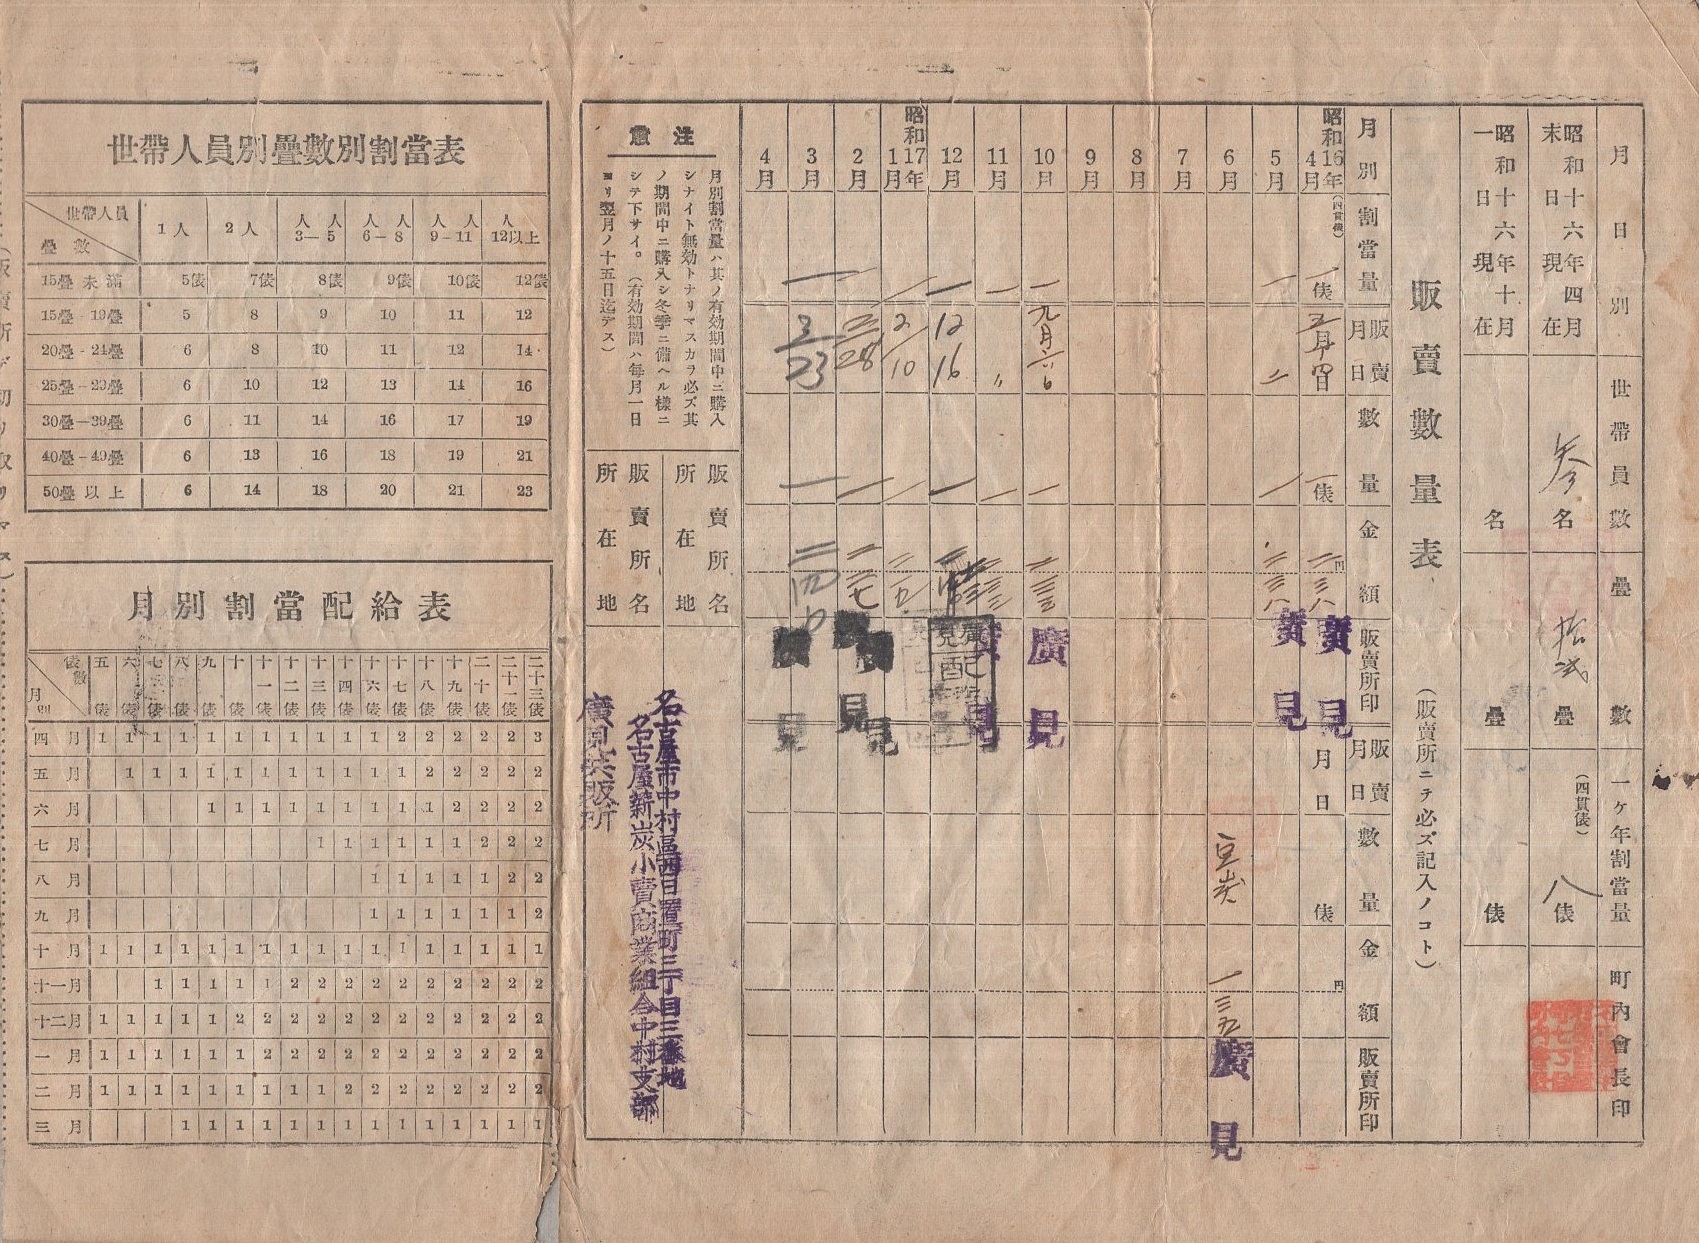 月日別
世帶員數
疊數
一ヶ年割當量
(四貫俵)
町內會長印
昭和十六年四月
末日現在
参名
拾弐疊
八俵
昭和十六年十月
一日現在
名
疊
俵
販賣數量表
(販賣所ニテ必ズ記入ノコト)
月別
割當量
販賣月日
數量
金額
販賣所印
販賣月日
數量
金額
販賣所印
昭和16年4月
(四貫俵)
一俵
一俵
円
二三八
廣見
月日
俵
円
5月
一
一
二三八
廣見
6月
豆炭
一三五
廣見
7月
8月
9月
10月
一
一
二三五
廣見
11月
一
〃
一
廣見
12月
一
12 16
一
昭和17年1月
一
2 10
一
2月
28
一
見
3月
一
3 23
一
見
4月
注意
月別割當量ハ其ノ有効期間中ニ購入
シナイト無効トナリマスカラ必ズ其
ノ期間中ニ購入シ冬季ニ備ヘル樣ニ
シテ下サイ。(有効期間ハ每月一日
ヨリ翌月ノ十五日迄デス)
販賣所名
所在地
販賣所名
所在地
名古屋市中村區西日置町三丁目三番地
名古屋薪炭小賣商業組合中村支部
廣見共販所
世帶人員別疊數別割當表
世帶人員
疊數
1人 2人 3—5人 6—8人 9—11人 12人以上
15疊未滿 5俵 7俵 8俵 9俵 10俵 12俵
15疊-19疊 5 8 9 10 11 12
20疊-24疊 6 8 10 11 12 14
25疊-29疊 6 10 12 13 14 16
30疊-39疊 6 11 14 16 17 19
40疊-49疊 6 13 16 18 19 21
50疊以上 6 14 18 20 21 23
月別割當配給表
俵數
月別
五俵 六俵 七俵 八俵 九俵 十俵 十一俵 十二俵 十三俵 十四俵 十六俵 十七俵 十八俵 十九俵 二十俵 二十一俵 二十三俵
四月 1 1 1 1 1 1 1 1 1 1 1 2 2 2 2 2 3
五月 1 1 1 1 1 1 1 1 1 1 1 2 2 2 2 2
六月 1 1 1 1 1 1 1 1 1 2 2 2 2
七月 1 1 1 1 1 1 2 2 2
八月 1 1 1 1 1 2 2
九月 1 1 1 1 1 1 2
十月 1 1 1 1 1 1 1 1 1 1 1 1 1 1 1 1 1
十一月 1 1 1 1 1 2 2 2 2 2 2 2 2 2 2
十二月 1 1 1 1 1 2 2 2 2 2 2 2 2 2 2 2 2
一月 1 1 1 1 1 1 2 2 2 2 2 2 2 2 2 2 2
二月 1 1 1 1 1 1 1 1 1 2 2 2 2 2 2 2 2
三月 1 1 1 1 1 1 1 1 1 1 1 1 1 1